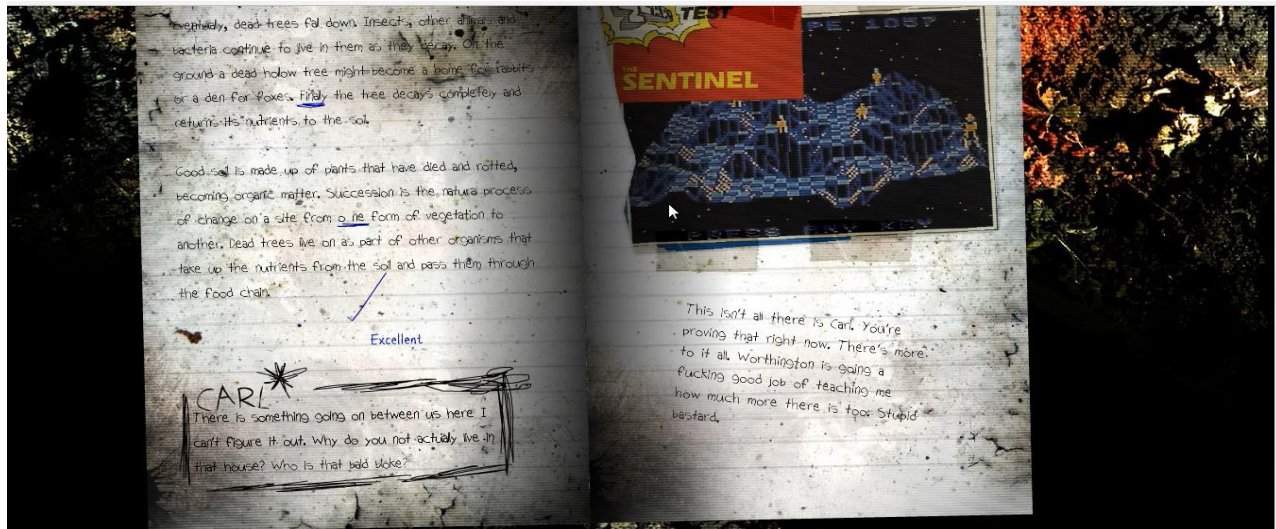 eventually, dead trees fall down. Insects, other animals and
bacteria continue to live in them as they decay. On the
ground a dead hollow tree might become a home for rabbits
or a den for foxes. Finally the tree decays completely and
returns its nutrients to the soil.
Good soil is made up of plants that have died and rotted,
becoming organic matter. Succession is the natural process
of change on a site from o ne form of vegetation to
another. Dead trees live on as part of other organisms that
take up the nutrients from the soil and pass them through
the food chain.
Excellent
CARL*
There is something going on between us here I
can't figure it out. Why do you not actually live in
that house? Who is that bald bloke?
TEST
THE
SENTINEL
1057
PRESS ANY KEY
This isn't all there is Carl. You're
proving that right now. There's more
to it all. Worthington is going a
fucking good job of teaching me
how much more there is too. Stupid
bastard.